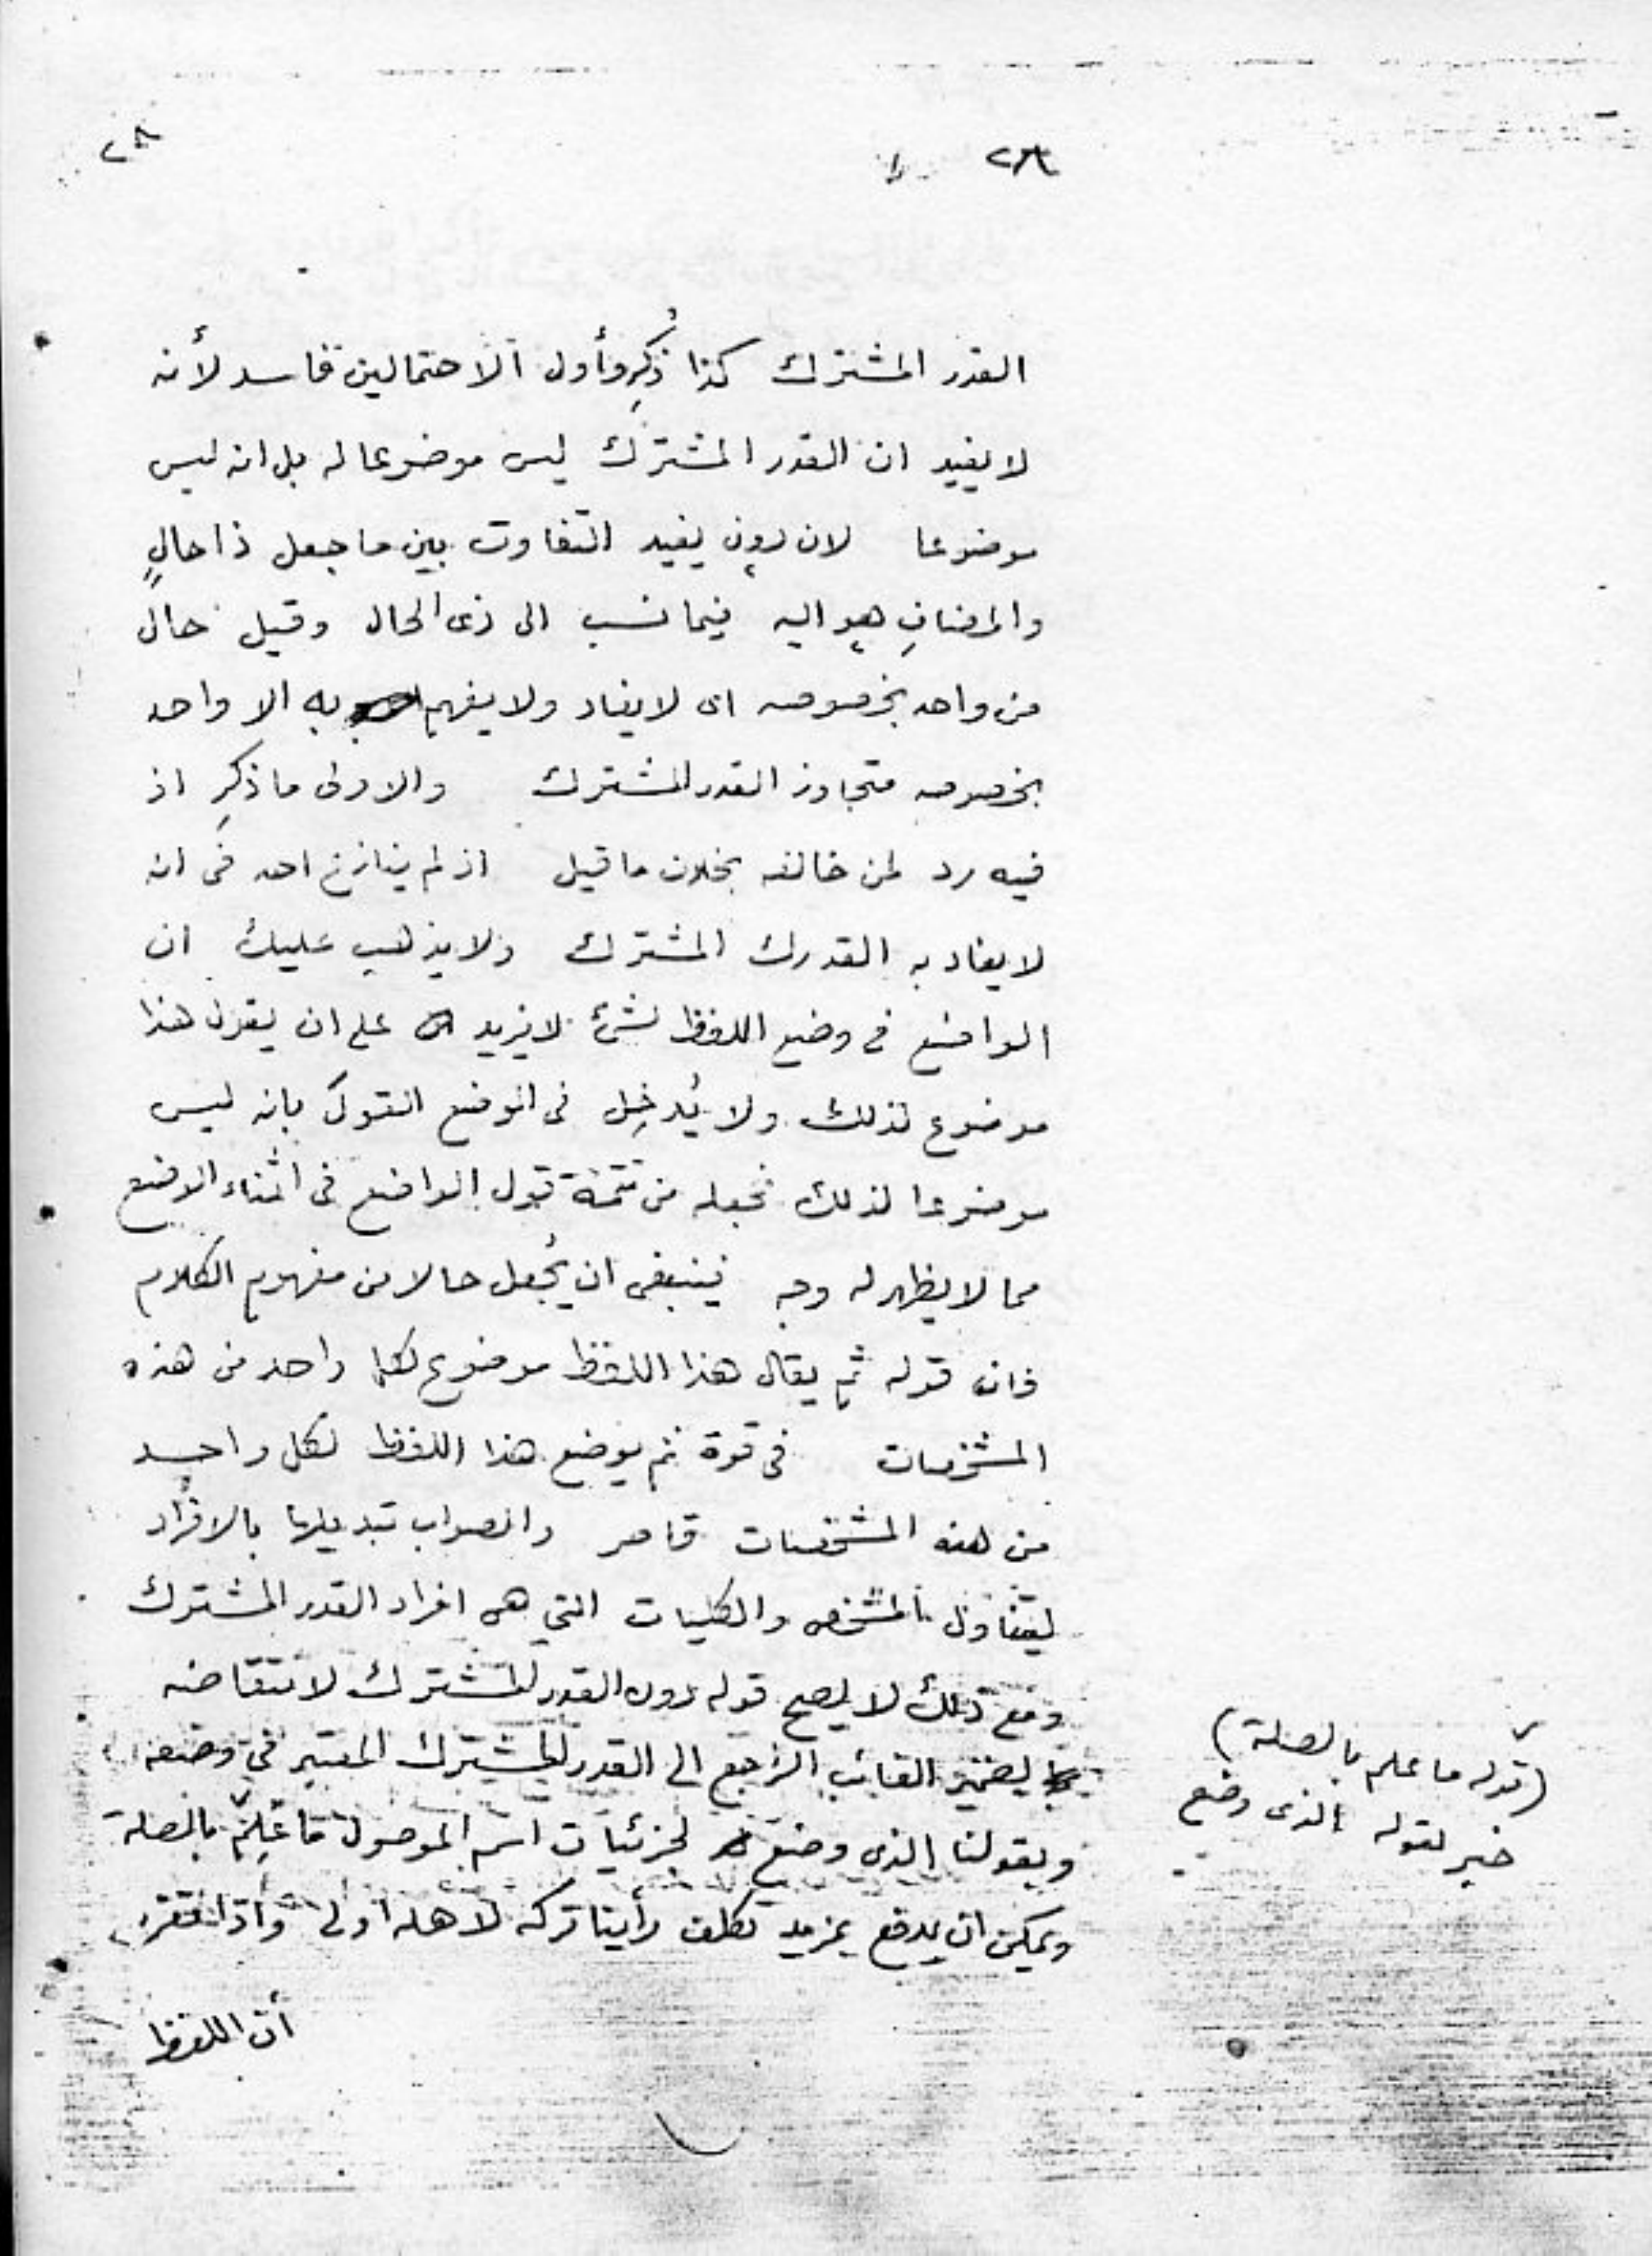 ٢٨
القدر المشترك كذا ذُكِر وأول الاحتمالين فاسد لأنه
لا يفيد ان القدر المشترك ليس موضوعا له بل انه ليس
موضوعا لان دون يفيد التفاوت بين ما جعل ذا حالٍ
والمضافِ هو اليه فيما نسب الى ذى الحال وقيل حال
من واحد بخصوصه اى لا يفاد ولا يفهم به الا واحد
بخصوصه متجاوز القدر المشترك والاولى ما ذكِر اذ
فيه رد لمن خالفه بخلاف ما قيل اذ لم ينازع احد فى انه
لا يفاد به القدر المشترك ولا يذهب عليك ان
الواضع فى وضع اللفظ لشئ لا يزيد على ان يقول هذا
موضوع لذلك ولا يُدخِل فى الوضع القول بانه ليس
موضوعا لذلك فجعله من تتمة قول الواضع فى اثناء الوضع
مما لا يظهر له وجه فينبغى ان يُجعل حالا من مفهوم الكلام
فان قوله ثم يقال هذا اللفظ موضوع لكل واحد من هذه
المشخصات فى قوة ثم يوضع هذا اللفظ لكل واحد
من هذه المشخصات قاصر والصواب تبديلها بالافراد
ليتناول المشخص والكليات التي هى افراد القدر المشترك
ومع ذلك لا يصح قوله دون القدر المشترك لانتقاضه
بضمير الغائب الراجع الى القدر المشترك المعتبر فى وضعه
وبقولنا الذى وضع لجزئيات اسم الموصول ما عُلِم بالصلة
ويمكن ان يدفع بمزيد تكلف رأينا تركه لاهله اولى
أن اللفظ
(قوله ما علم بالصلة)
خبر لقوله الذى وضع